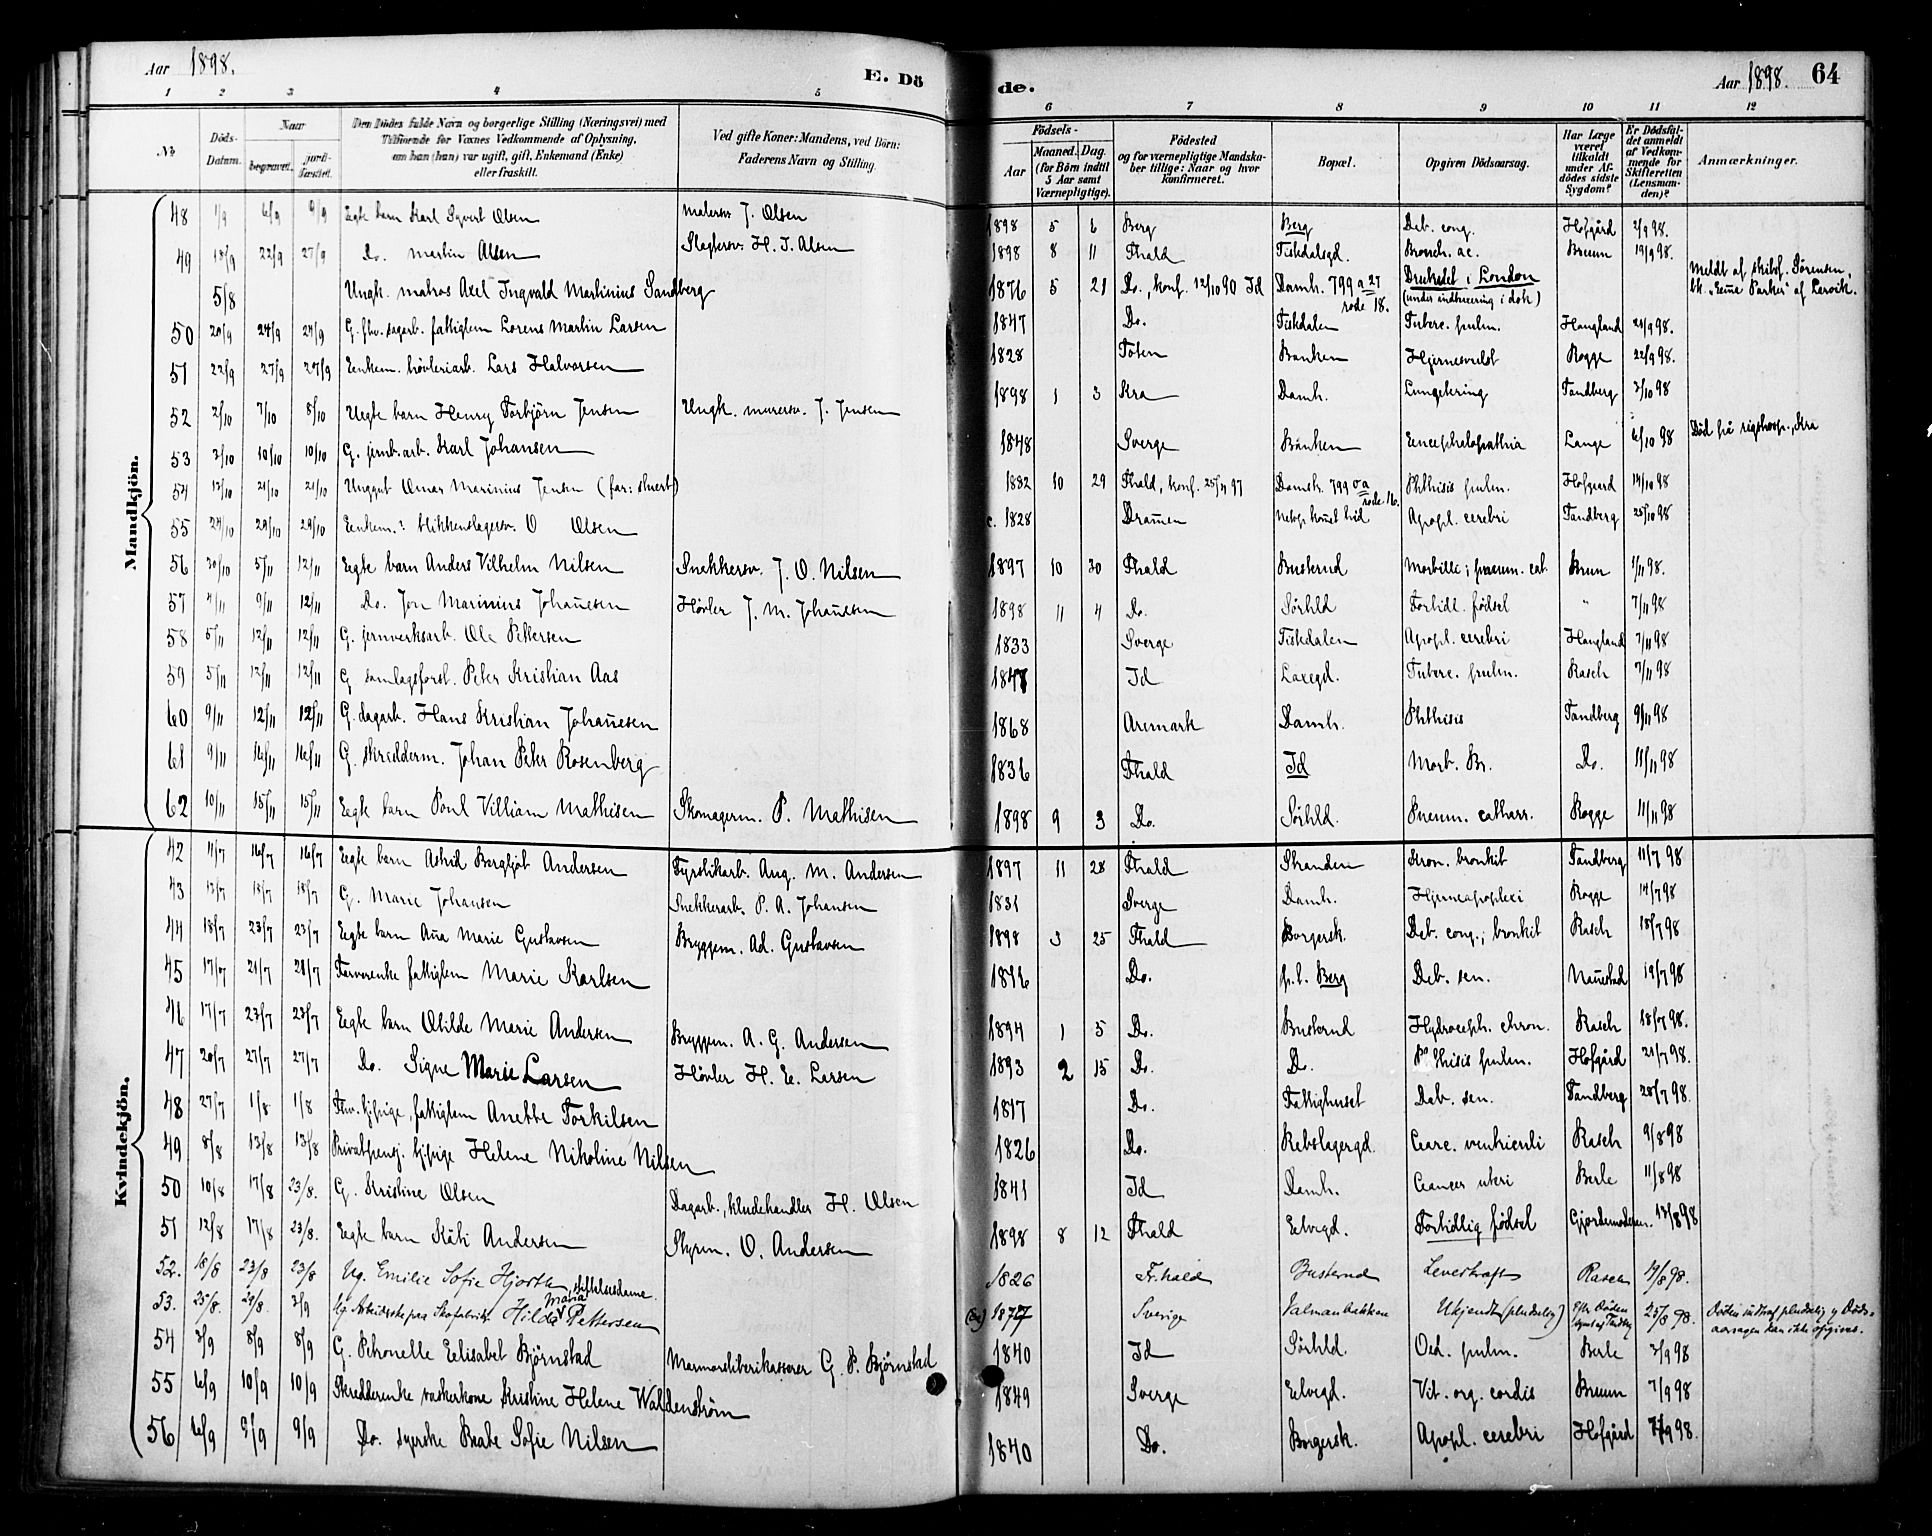 Aar 1898.
E. Dö
de.
Aar 1898. 64
1 2 3 4 5 6 7 8 9 10 11 12
No
Döds-Datum.
Naar
begravet.
jordfæstet.
Den Dödes fulde Navn og borgerlige Stilling (Næringsvei) med Tilföiende for Voxnes Vedkommende af Oplysning, om han (hun) var ugift, gift, Enkemand (Enke) eller fraskilt.
Ved gifte Koner: Mandens, ved Börn: Faderens Navn og Stilling.
Födsels-
Aar
Maaned. Dag. (for Börn indtil 5 Aar samt Værnepligtige).
Födested og for værnepligtige Mandskaber tillige: Naar og hvor konfirmeret.
Bopæl.
Opgiven Dödsaarsag.
Har Læge været tilkaldt under Afdödes sidste Sygdom?
Er Dödsfaldet anmeldt af Vedkommende for Skifteretten (Lensmanden)?
Anmærkninger.
Mandkjön.
48 1/9 6/9 9/9 Egte barn Karl Syvert Olsen Malersv. J. Olsen 1898 5 6 Berg Berg Deb. cong. Hofgård 2/9 98.
49 18/9 22/9 27/9 Do. Martin Olsen Slagtersv. H. J. Olsen 1898 8 11 Fhald Fiskdalsgd. Bronch. ac. Bruun 19/9 98.
5/8 Ungk. matros Axel Ingvald Martinius Sandberg 1876 5 21 Do., konf. 12/10 90 Id Damh. 799 a 27 rode 18. Druknet i London (under indtuering i dok) Meldt af skibsf. Sörensen, bk. "Emma Parker" af Larvik.
50 20/9 24/9 24/9 G. fhv. dagarb. fattiglem Lorens Martin Larsen 1847 Do. Fiskdalen Tuberc. pulm. Haugland 21/9 98.
51 22/9 27/9 27/9 Enkem. høvleriarb. Lars Halvorsen 1828 Toten Banken Hjernesvulst Rogge 22/9 98.
52 2/10 7/10 8/10 Uegte barn Henry Torbjörn Jensen Ungk. murersv. J. Jensen 1898 1 3 Kra Damh. Lungetæring Tandberg 3/10 98
53 3/10 10/10 10/10 G. jernb.arb. Karl Johansen 1848 Sverge Banken Encephalopathia Lange 6/10 98 Död på rigshosp., Kra
54 13/10 21/10 21/10 Unggut Omar Marinius Jensen 1882 10 29 Fhald, konf. 25/4 97 Damh. 799 a rode 16. Phthisis pulm. Hofgaard 14/10 98
55 24/10 29/10 29/10 Enkem.? blikkenslagersv. O Olsen c. 1828 Dramen Apopl. cerebri Tandberg 25/10 98
56 30/10 5/11 12/11 Egte barn Anders Vilhelm Nilsen Snekkersv. J. O. Nilsen 1897 10 30 Fhald Busterud Morbilli; pneum. cat. Brun 1/11 98.
57 4/11 9/11 12/11 Do. Jon Marinius Johanesen Hövler J. M. Johanesen 1898 11 4 Do. Sörhld Fortidl. födsel " 7/11 98
58 5/11 12/11 12/11 G. jernverksarb. Ole Pettersen 1833 Sverge Fiskdalen Apopl. cerebri Haugland 7/11 98
59 5/11 12/11 12/11 G. samlagsforst. Peter Kristian Aas 1847 Id Laxegd. Tuberc. pulm. Rasch 7/11 98
60 9/11 12/11 12/11 G. dagarb. Hans Kristian Johanesen 1868 Aremark Damh. Phthisis Tandberg 9/11 98
61 9/11 16/11 16/11 G. skredderm. Johan Peter Rosenberg 1836 Fhald Id Morb. Br. Do. 11/11 98
62 10/11 15/11 15/11 Egte barn Poul Villiam Mathisen Skomagerm. P. Mathisen 1898 9 3 Do. Sörhld. Pneum. catharr. Rogge 11/11 98
Kvindekjön.
42 11/7 16/7 16/7 Egte barn Astrid Bergljot Andersen Fyrstikarb. Aug. M. Andersen 1897 11 28 Fhald Stranden Kron. bronkit Tandberg 11/7 98
43 13/7 18/7 18/7 G. Marie Johansen Snekkerarb. P. A. Johansen 1831 Sverge Damh. Hjerneapoplexi Rogge 14/7 98
44 18/7 23/7 23/7 Egte barn Ana Marie Gustavsen Bryggem. Ad. Gustavsen 1898 3 25 Fhald Borgersk. Deb. cong.; bronkit Rasch 18/7 98
45 17/7 21/7 21/7 Farverenke fattiglem Marie Karlsen 1816 Do. p.t. Berg Deb. sen. Naustad 19/7 98
46 17/7 23/7 23/7 Egte barn Otilde Marie Andersen Bryggem. A. G. Andersen 1894 1 5 Do. Busterud Hydroceph. chron. Rasch 18/7 98.
47 20/7 27/7 27/7 Do. Signe Marie Larsen Hövler H. E. Larsen 1893 2 15 Do. Do. Phthisis pulm. Hofgård 21/7 98.
48 27/7 1/8 1/8 Fhv. tj.pige, fattiglem Anette Torkilsen 1817 Do. Fattighuset Deb. sen. Tandberg 28/7 98.
49 8/8 13/8 13/8 Privatpensj. tj.pige Helene Nikoline Nilsen 1826 Do. Rebslagergd. Carc. ventriculi Rasch 9/8 98
50 10/8 17/8 23/8. G. Kristine Olsen Dagarb., kludehandler H. Olsen 1841 Id Damh. Cancer uteri Berle 11/8 98
51 12/8 17/8 23/8. Egte barn Käti Andersen Styrm. O. Andersen 1898 8 12 Fhald Elvegd. Fortidlig födsel Gjordemoderen. 13/8 98
52. 18/8 23/8 23/8 Ug. Emilie Sofie Hjorth, stiftelsesdame. 1826 Fr.hald Busterud Leverkraft Rasch 19/8 98.
53. 25/8. 29/8. 3/9 Ug. Arbeiderske paa Skofabrik Hilda Maria Pettersen 1877 Sverige Valmanbakken Ukjendt (pludselig) Efter Döden synet af Tandbg 25/8 98. Döden indtraf pludselig og Dödsaarsagen kan ikke opgives.
54 3/9 8/9 8/9 G. Petronelle Elisabet Björnstad Marmorsliberikasserer G. P. Björnstad 1840 Id Sörhld. Oed. pulm. Berle 3/9 98
55 6/9 10/9 10/9 Skredderenke vaskerkone Kristine Helene Waldenström 1849 Sverge Elvegd. Vit. org. cordis Bruun 7/9 98
56 6/9 9/9 9/9 Do. syerske Beate Sofie Nilsen 1840 Do. Borgersk. Apopl. cerebri Hofgård 7/9 98.